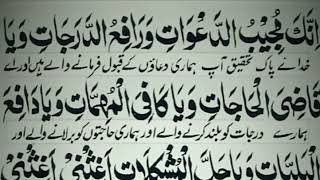 اِنَّكَ مُجِيْبُ الدَّعْوَاتِ وَرَافِعُ الدَّرَجَاتِ وَيَا
خدائے پاک تحقیق آپ ہماری دعاؤں کے قبول فرمانے والے ہیں اور اے
قَاضِىَ الْحَاجَاتِ وَيَا كَافِىَ الْمُهِمَّاتِ وَيَا دَافِعَ
ہمارے درجات کو بلند کرنے والے اور ہماری حاجتوں کو برلانے والے اور
الْبَلِيَّاتِ وَيَا حَلَّ الْمُشْكِلَاتِ اَغِثْنِىْ اَغِثْنِىْ